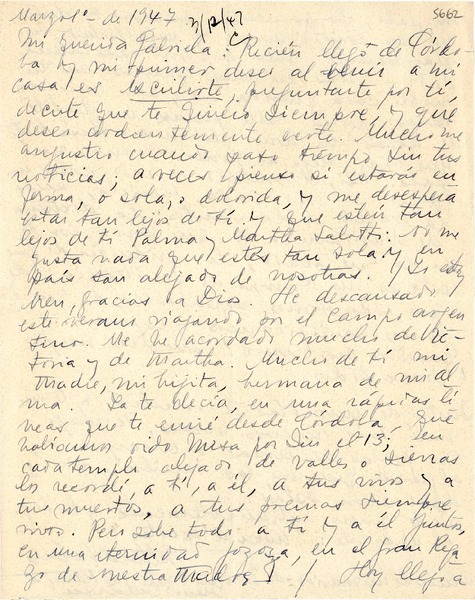 S662
Marzo 1º de 1947
Mi querida Gabriela: Recién llego de Córdo-
ba y mi primer deseo al venir a mi
casa es escribirte, preguntarte por ti,
decirte que te quiero siempre, y que
deseo ardientemente verte. Mucho me
angustio cuando paso tiempo sin tus
noticias; a veces pienso si estarás en-
ferma, o sola, o dolorida, y me desespera
estar tan lejos de ti, y que estén tan
lejos de ti Palma y Martha Salotti. No me
gusta nada que estés tan sola y en
país tan alejado de nosotras. / Yo estoy
bien, gracias a Dios. He descansado
este verano viajando por el campo argen
tino. Me he acordado mucho de Vic-
toria y de Martha. Mucho de ti mi
Madre, mi hijita, hermana de mi al
ma. Ya te decía, en unas rápidas lí
neas que te envié desde Córdoba, que
habíamos oído Misa por Yin el 13; en
cada templo alejado de valles o sierras
los recordé, a ti, a él, a tus vivos y a
tus muertos, a tus poemas siempre
vivos. Pero sobre todo a ti y a él juntos,
en una eternidad gozoza, en el gran Rega
zo de nuestra Madre. / Hoy llega